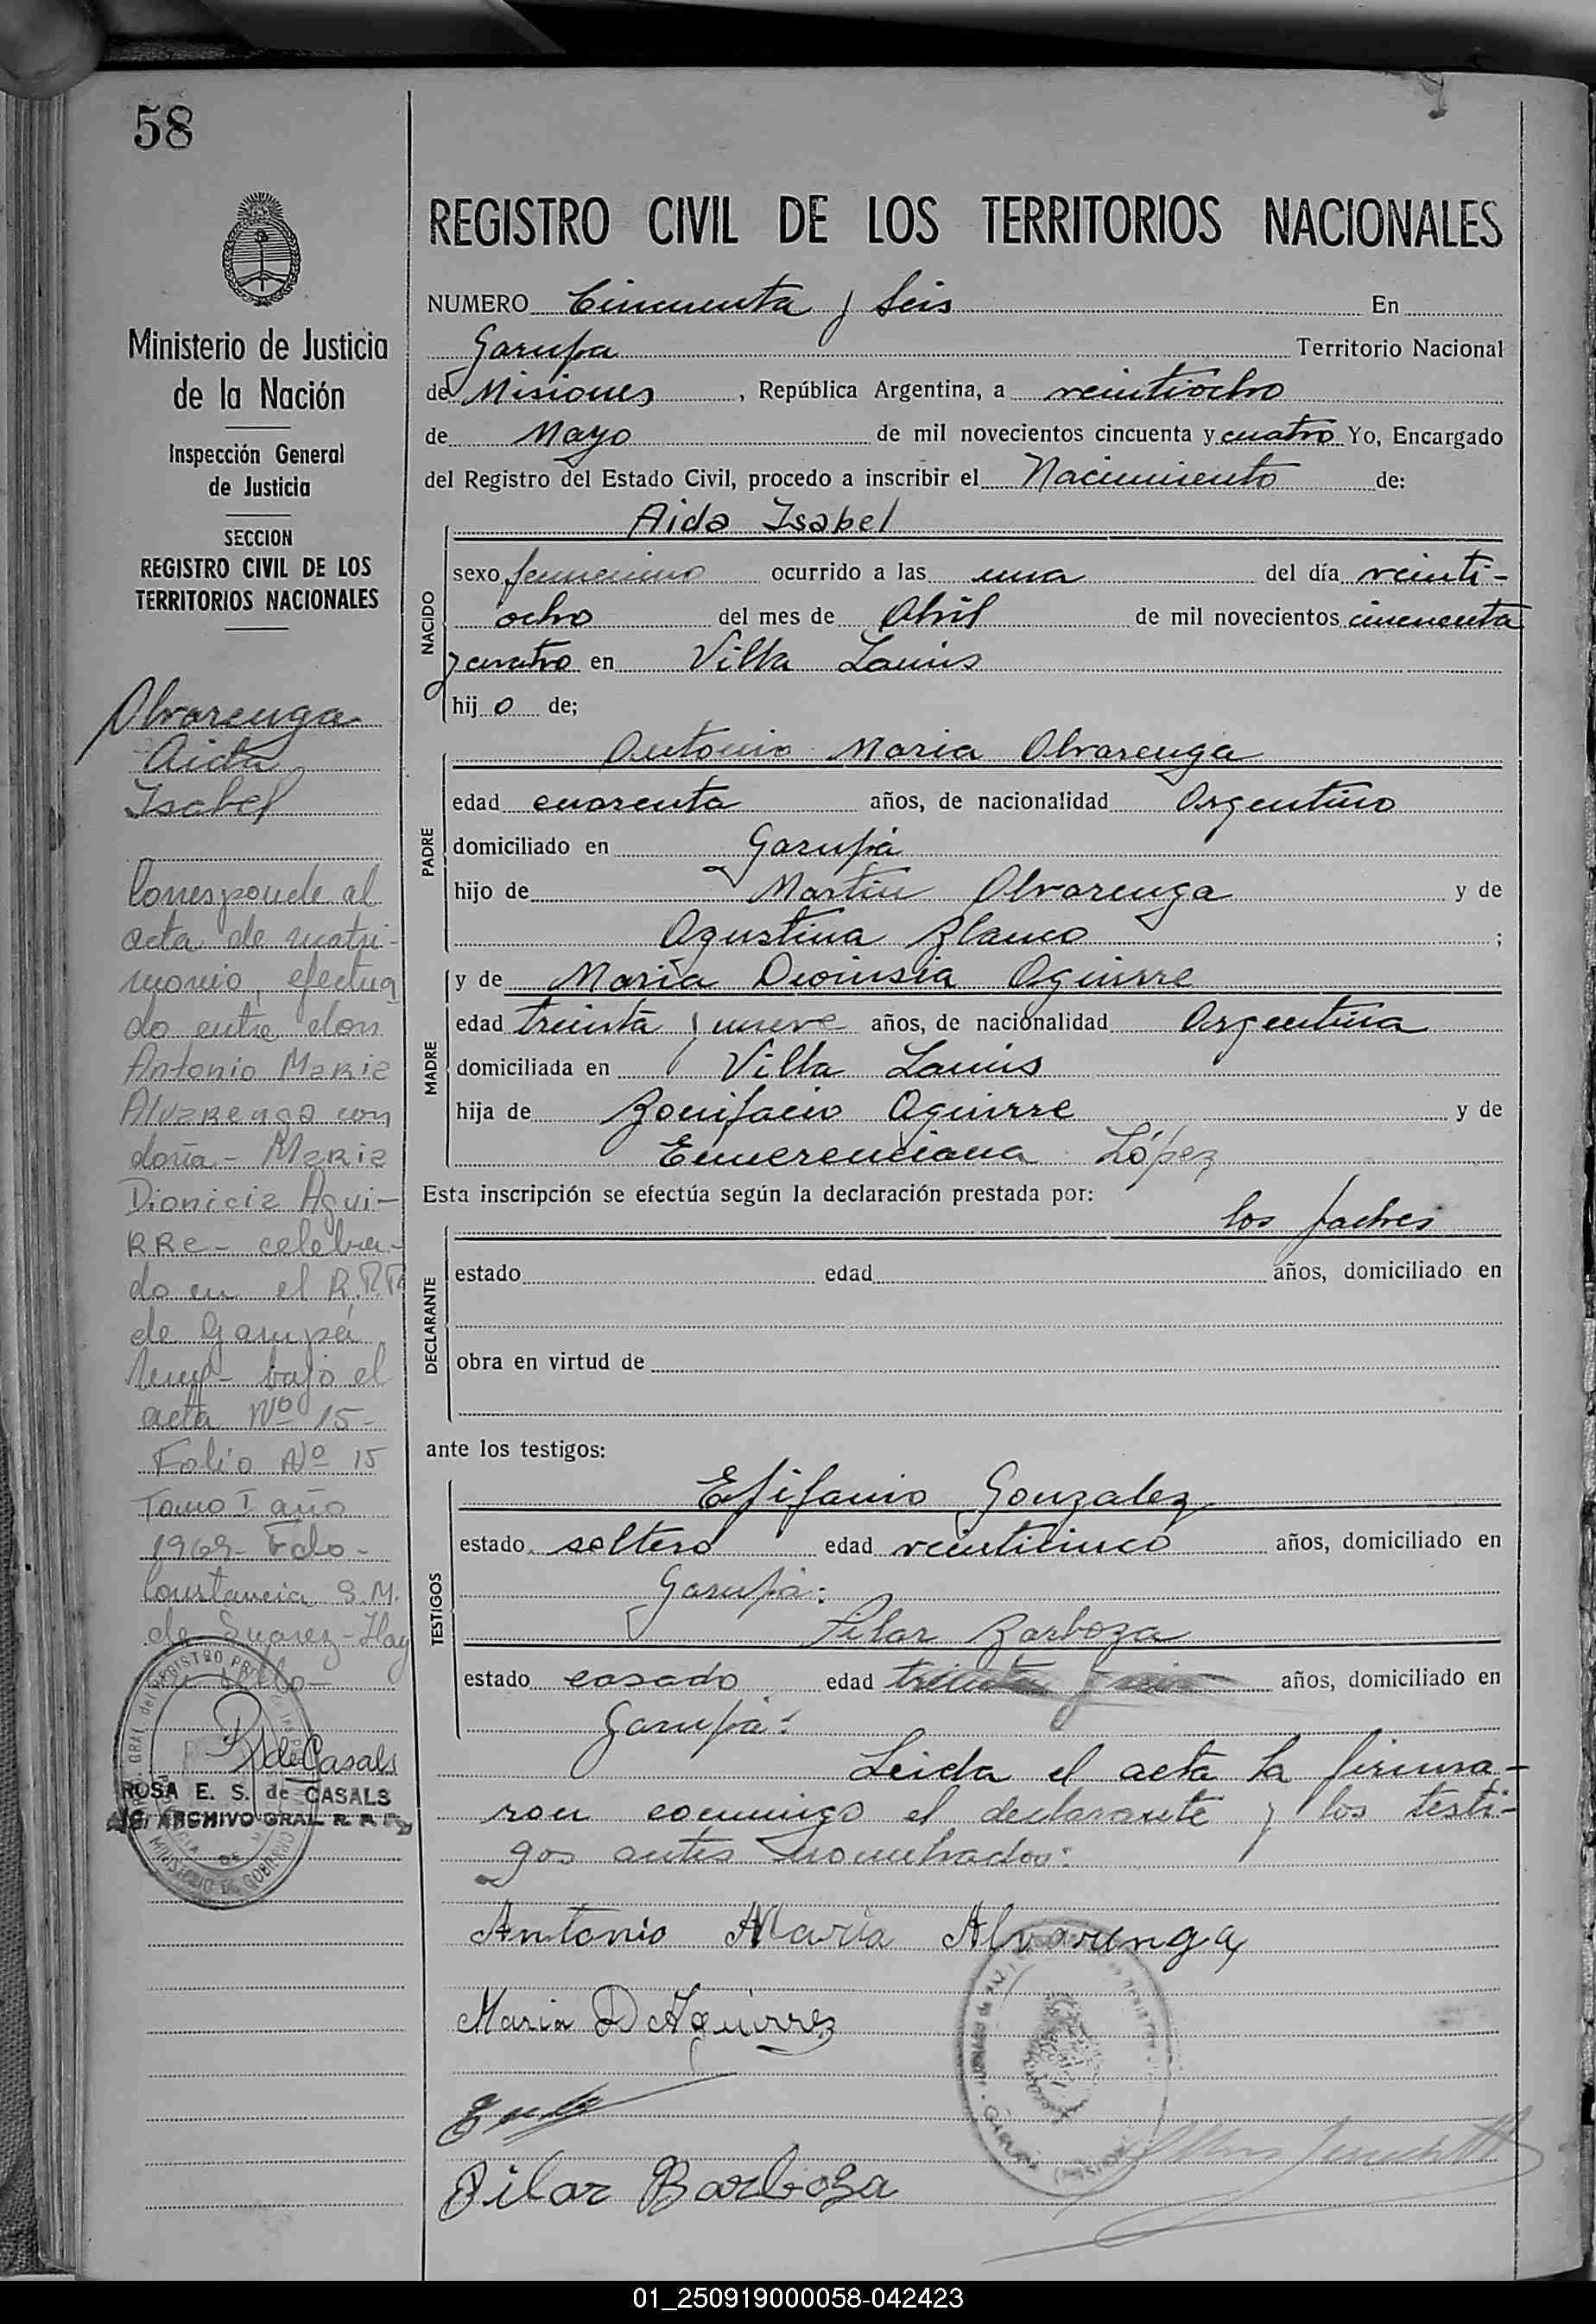 58
Ministerio de Justicia
de la Nación
Inspección General
de Justicia
SECCION
REGISTRO CIVIL DE LOS
TERRITORIOS NACIONALES
Alvarenga
Aida
Isabel
Corresponde al
acta de matri-
monio, efectua
do entre don
Antonio Maria
Alvarenga con
doña - Maria
Dionicia Agui-
RRe - celebra-
do en el R.P.P.
de Garupá
bajo el
acta Nº 15-
Folio Nº 15
Tomo I año
1969- Fdo-
Constancia S.M.
de Suarez - Hay
un sello-
R S de Casals
ROSA E. S. de CASALS
ARCHIVO GRAL. R. P. P.
REGISTRO CIVIL DE LOS TERRITORIOS NACIONALES
NUMERO Cincuenta y Seis En
Garupa Territorio Nacional
de Misiones, República Argentina, a veintiocho
de Mayo de mil novecientos cincuenta y cuatro Yo, Encargado
del Registro del Estado Civil, procedo a inscribir el Nacimiento de:
NACIDO
Aida Isabel
sexo femenino ocurrido a las una del día veinti-
ocho del mes de Abril de mil novecientos cincuenta
y cuatro en Villa Lanús
hij o de;
PADRE
Antonio Maria Alvarenga
edad cuarenta años, de nacionalidad Argentino
domiciliado en Garupá
hijo de Martin Alvarenga y de
Agustina Blanco ;
MADRE
y de Maria Dionisia Aguirre
edad treinta y nueve años, de nacionalidad Argentina
domiciliada en Villa Lanus
hija de Bonifacio Aguirre y de
Emerenciana López
Esta inscripción se efectúa según la declaración prestada por:
DECLARANTE
los padres
estado edad años, domiciliado en
obra en virtud de
ante los testigos:
TESTIGOS
Epifanio Gonzalez
estado soltero edad veinticinco años, domiciliado en
Garupá:
Pilar Barboza
estado casado edad treinta y años, domiciliado en
Garupá:
Leida el acta la firma-
ron conmigo el declarante y los testi-
gos antes nombrados:
Antonio Maria Alvarenga
Maria D Aguirrez
Pilar Barboza
01_250919000058-042423